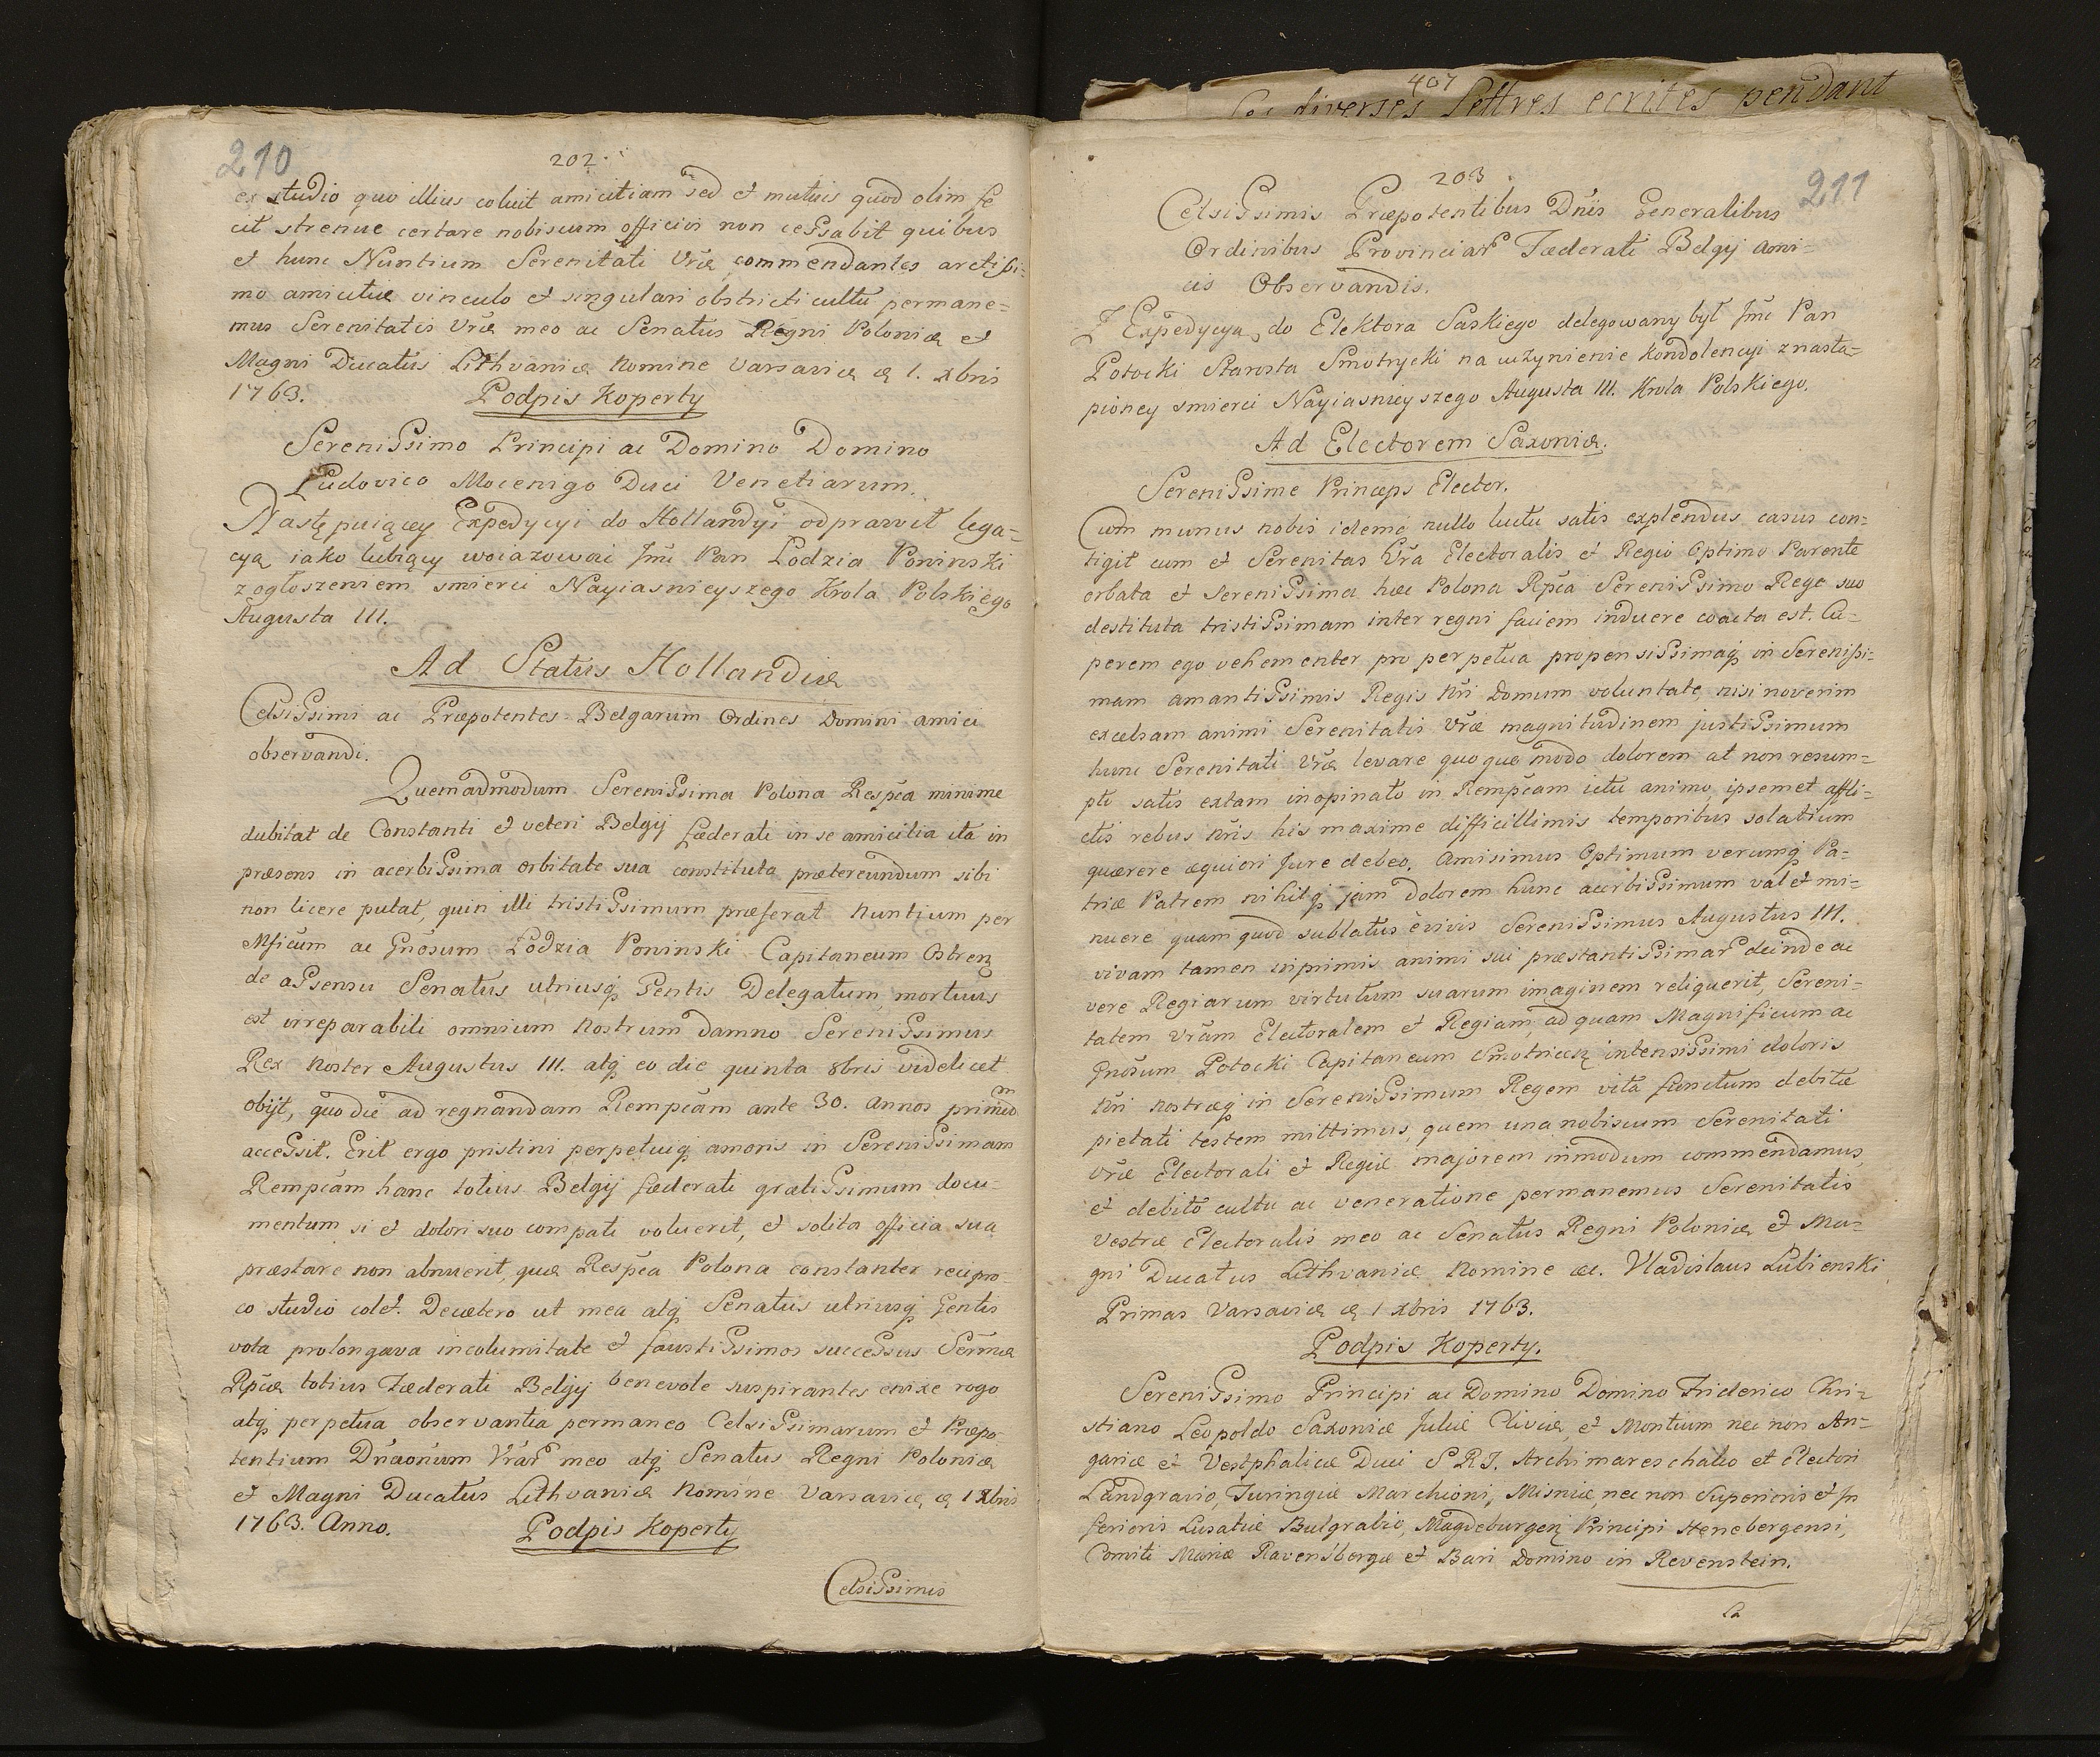 210
202.
ex studio quo illius coluit amicitiam sed et mutuis quod olim fe
cit strenue certare nobiscum officiis non cessabit quibus
et hunc Nuntium Serenitati Vræ commendantes arctissi=
mo amicitiæ vinculo et singulari obstricti cultu permane=
mus Serenitatis Vræ meo ac Senatus Regni Poloniæ et
Magni Ducatus Lithvaniæ Nomine Varsaviæ 1. Xbris
1763.
Podpis Koperty
Serenissimo Principi ac Domino Domino
Ludovico Mocenigo Duci Venetiarum.
Następuiącey Expedycyi do Hollandyi odprawił lega=
cyą iako lubiący woiazować Jmć Pan Łodzia Poninski
z ogłoszeniem smierci Nayiasnieyszego Krola Polskiego
Augusta III.
Ad Status Hollandiæ
Celsissimi ac Præpotentes Belgarum Ordines Domini amici
observandi.
Quemadmodum Serenissima Polona Respca minime
dubitat de Constanti et veteri Belgij fæderati in se amicitia ita in
præsens in acerbissima orbitate sua constituta prætereundum sibi
non licere putat, quin illi tristissimum præferat Nuntium per
Mficum ac Gnosum Łodzia Poninski Capitaneum Ostren
de assensu Senatus utriusq Gentis Delegatum mortuus
est irreparabili omnium Nostrum damno Serenissimus
Rex Noster Augustus III. atq eo die quinta 8bris videlicet
obijt, quo die ad regnandam Rempcam ante 30. Annos primum
accessit. Erit ergo pristini perpetuiq amoris in Serenissimam
Rempcam hanc totius Belgij fæderati gratissimum docu=
mentum si et dolori suo compati voluerit, et solita officia sua
præstare non abnuerit, quæ Respca Polona constanter recipro=
co studio colet. De cætero ut mea atq Senatus utriusq Gentis
vota prolongæva incolumitate et faustissimos successus Sermæ
Rpcæ totius Fæderati Belgij benevole suspirantes enixe rogo
atq perpetua observantia permaneo Celsissimarum et Præpo
tentium Dnaonum Vrar meo atq Senatus Regni Poloniæ
et Magni Ducatus Lithvaniæ Nomine Varsaviæ 1 Xbris
1763. Anno.
Podpis Koperty
Celsissimis
407
diverses Lettres ecrites pendant
203.
211
Celsissimis Præpotentibus Dnis Generalibus
Ordinibus Provinciar Fæderati Belgij ami=
cis Observandis.
Z Expedycyą do Elektora Saskiego delegowany był Jmć Pan
Potocki Starosta Smotrycki na uczynienie kondolencyi z nastą=
pioney smierci Nayiasnieyszego Augusta III. Krola Polskiego.
Ad Electorem Saxoniæ.
Serenissime Princeps Elector.
Cum munus nobis idemq nullo luctu satis explendus casus con=
tigit cum et Serenitas Vra Electoralis et Regio Optimo Parente
orbata et Serenissima hæc Polona Rpca Serenissimo Rege suo
destituta tristissimam inter regni faciem induere coacta est. Cu=
perem ego vehementer pro perpetua propensissimaq in Serenissi=
mam amantissimis Regis Nri Domum voluntate nisi noverim
excelsam animi Serenitatis Vræ magnitudinem justissimum
hunc Serenitati Vræ levare quoquæ modo dolorem at non resum=
pti satis ex tam inopinato in Rempcam ictu animo, ipsemet affli=
ctis rebus Nris his maxime difficillimis temporibus solatium
quærere æquiori Jure debeo. Amisimus Optimum verumq Pa=
triæ Patrem nihilq jam dolorem hunc acerbissimum valet mi=
nuere quam quod sublatus è vivis Serenissimus Augustus III.
vivam tamen inprimis animi sui præstantissimar deinde ac
vere Regiarum virtutum suarum imaginem reliquerit, Sereni=
tatem Vram Electoralem et Regiam ad quam Magnificum ac
Gnosum Potocki Capitaneum Smotricen intensissimi doloris
Nri nostræq in Serenissimum Regem vita functum debitæ
pietati testem mittimus, quem una nobiscum Serenitati
Vræ Electorali et Regiæ majorem inmodum commendamus,
et debito cultu ac veneratione permanemus Serenitatis
Vestræ Electoralis meo ac Senatus Regni Poloniæ et Ma=
gni Ducatus Lithvaniæ Nomine &c. Vladislaus Lubienski
Primas Varsaviæ 1 Xbris 1763.
Podpis Koperty.
Serenissimo Principi ac Domino Domino Friderico Chri=
stiano Leopoldo Saxoniæ Juliæ Cliviæ et Montium nec non An=
gariæ et Vestphaliæ Duci S.R.I. Archimareschalco et Electori
Landgravio, Turingiæ Marchioni, Misniæ, nec non Superioris et In
ferioris Lusatiæ Bulgrabio, Magdeburgen Principi Henebergensi,
Comiti Mariæ Ravensbergæ et Bari Domino in Revenstein.